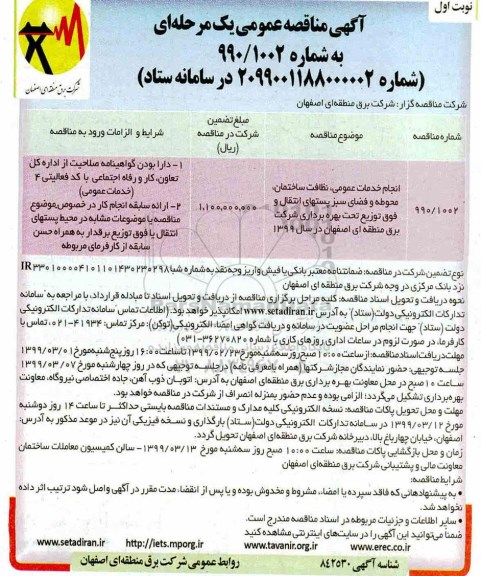 نوبت اول
آگهی مناقصه عمومی یک مرحله‌ای
به شماره ۹۹۰/۱۰۰۲
(شماره ۲۰۹۹۰۰۱۱۸۸۰۰۰۰۰۲ در سامانه ستاد)
شرکت برق منطقه‌ای اصفهان
شرکت مناقصه گزار: شرکت برق منطقه‌ای اصفهان
شماره مناقصه
موضوع مناقصه
مبلغ تضمین شرکت در مناقصه (ریال)
شرایط و الزامات ورود به مناقصه
۹۹۰/۱۰۰۲
انجام خدمات عمومی، نظافت ساختمان،
محوطه و فضای سبز پستهای انتقال و
فوق توزیع تحت بهره برداری شرکت
برق منطقه ای اصفهان در سال ۱۳۹۹
۱,۱۰۰,۰۰۰,۰۰۰
۱- دارا بودن گواهینامه صلاحیت از اداره کل
تعاون، کار و رفاه اجتماعی با کد فعالیتی ۴
(خدمات عمومی)
۲- ارائه سابقه انجام کار در خصوص موضوع
مناقصه یا موضوعات مشابه در محیط پستهای
انتقال یا فوق توزیع برقدار به همراه حسن
سابقه از کارفرمای مربوطه
نوع تضمین شرکت در مناقصه: ضمانتنامه معتبر بانکی یا فیش واریز وجه نقد به شماره شبا IR۳۳۰۱۰۰۰۰۴۱۰۱۱۰۱۴۳۰۲۳۰۲۹۸
نزد بانک مرکزی در وجه شرکت برق منطقه ای اصفهان
نحوه دریافت و تحویل اسناد مناقصه: کلیه مراحل برگزاری مناقصه از دریافت و تحویل اسناد تا مبادله قرارداد، با مراجعه به سامانه
تدارکات الکترونیکی دولت(ستاد) به آدرس www.setadiran.ir امکانپذیر خواهد بود. (اطلاعات تماس سامانه تدارکات الکترونیکی
دولت (ستاد) جهت انجام مراحل عضویت در سامانه و دریافت گواهی امضاء الکترونیکی(توکن): مرکز تماس، ۴۱۹۳۴-۰۲۱، تماس با
کارفرما، در صورت لزوم در ساعات اداری روزهای کاری با شماره ۳۶۲۷۰۸۲۰-۰۳۱)
مهلت دریافت اسناد مناقصه: از ساعت ۱۰:۰۰ صبح روز سه‌شنبه مورخ ۱۳۹۹/۰۲/۲۳ تا ساعت ۱۶:۰۰ روز پنج‌شنبه مورخ ۱۳۹۹/۰۳/۰۱
جلسه توجیهی: حضور نمایندگان مجاز شرکتها (همراه با معرفی نامه) در جلسه توجیهی که در روز چهارشنبه مورخ ۱۳۹۹/۰۳/۰۷
ساعت ۱۰ صبح در محل معاونت بهره برداری برق منطقه‌ای اصفهان به آدرس: اتوبان ذوب آهن، جاده اختصاصی نیروگاه، معاونت
بهره برداری تشکیل می‌گردد؛ الزامی بوده و عدم حضور بمنزله انصراف از شرکت در مناقصه خواهد بود.
مهلت و محل تحویل پاکات مناقصه: نسخه الکترونیکی کلیه مدارک و مستندات مناقصه بایستی حداکثر تا ساعت ۱۴ روز دوشنبه
مورخ ۱۳۹۹/۰۳/۱۲ در سامانه تدارکات الکترونیکی دولت(ستاد) بارگذاری و نسخه فیزیکی آن نیز در موعد مذکور به آدرس:
اصفهان، خیابان چهارباغ بالا، دبیرخانه شرکت برق منطقه‌ای اصفهان تحویل گردد.
زمان و محل بازگشایی پاکات مناقصه: ساعت ۱۰:۰۰ صبح روز سه‌شنبه مورخ ۱۳۹۹/۰۳/۱۳- سالن کمیسیون معاملات ساختمان
معاونت مالی و پشتیبانی شرکت برق منطقه‌ای اصفهان
شرایط مناقصه:
• به پیشنهادهائی که فاقد سپرده یا امضاء، مشروط و مخدوش بوده و یا پس از انقضاء مدت مقرر در آگهی واصل شود ترتیب اثر داده
نخواهد شد.
• سایر اطلاعات و جزئیات مربوطه در اسناد مناقصه مندرج است.
ضمنا می‌توانید این آگهی را در سایت‌های اینترنتی مشاهده کنید
www.setadiran.ir http://iets.mporg.ir www.tavanir.org.ir www.erec.co.ir
شناسه آگهی ۸۴۲۵۳۰
روابط عمومی شرکت برق منطقه‌ای اصفهان